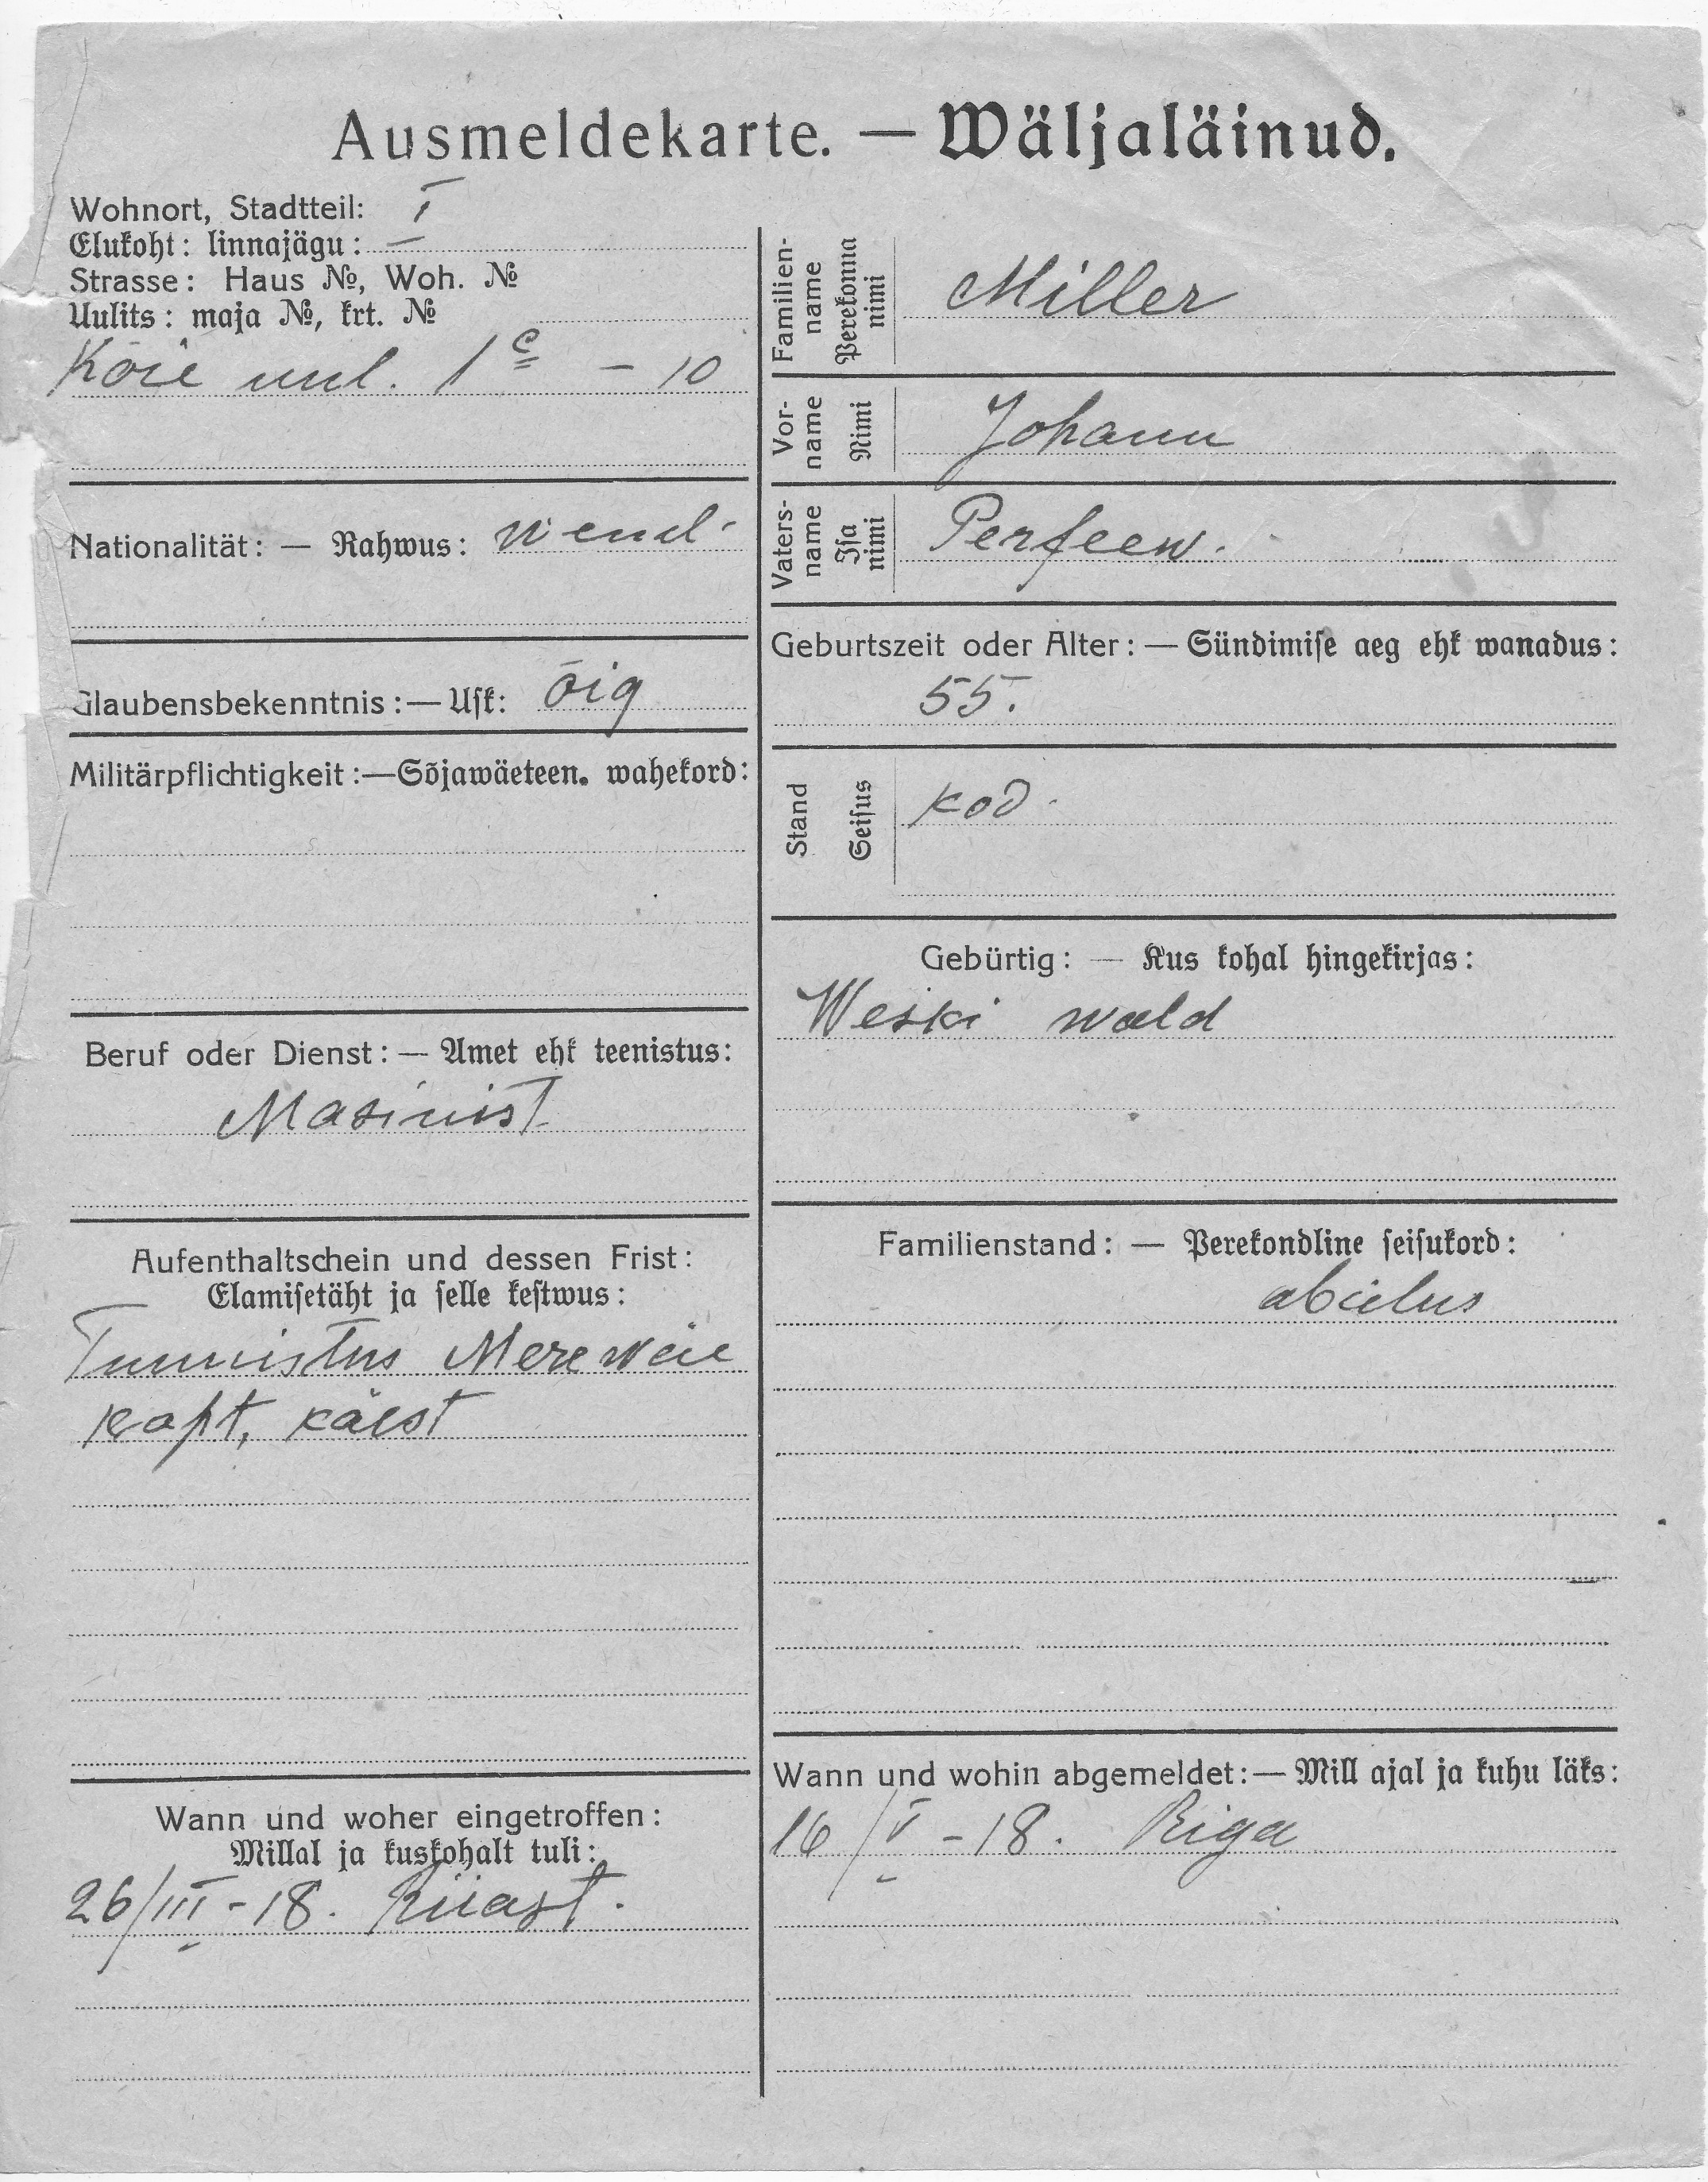 Ausmeldekarte. — Wäljaläinud.
Wohnort, Stadtteil: I
Elukoht: linnajägu:
Strasse: Haus №, Woh. №
Uulits: maja №, krt. №
Köie uul. 1 c – 10
Nationalität: — Rahwus: wend.
Glaubensbekenntnis: — Usk: õig
Militärpflichtigkeit: — Sõjawäeteen. wahekord:
Beruf oder Dienst: — Amet ehk teenistus:
Masinist
Aufenthaltschein und dessen Frist:
Elamisetäht ja selle kestwus:
Tunnistus Merewäe
kapt, käest
Wann und woher eingetroffen:
Millal ja kuskohalt tuli:
26/III - 18. Riiast.
Familien-name Perekonna nimi Miller
Vor-name Nimi Johann
Vaters-name Isa nimi Perfeew.
Geburtszeit oder Alter: — Sündimise aeg ehk wanadus:
55.
Stand Seisus kod.
Gebürtig: — Kus kohal hingekirjas:
Weski wald
Familienstand: — Perekondline seisukord:
abielus
Wann und wohin abgemeldet: — Mill ajal ja kuhu läks:
16/V - 18. Riga